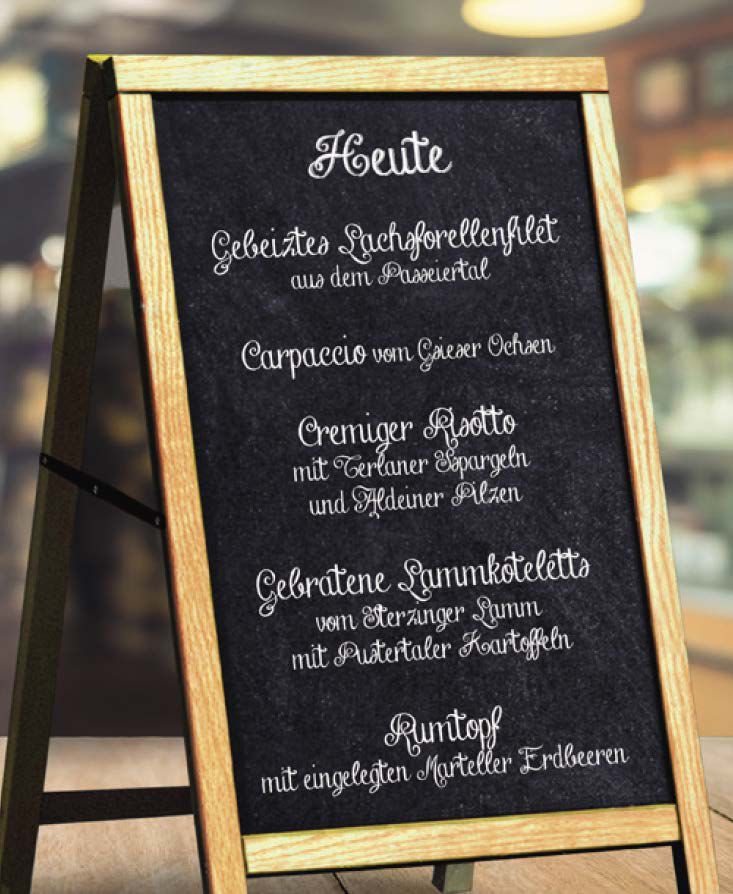 Heute
Gebeiztes Lachsforellenfilet
aus dem Passeiertal
Carpaccio vom Gsieser Ochsen
Cremiger Risotto
mit Terlaner Spargeln
und Aldeiner Pilzen
Gebratene Lammkoteletts
vom Sterzinger Lamm
mit Pustertaler Kartoffeln
Rumtopf
mit eingelegten Marteller Erdbeeren